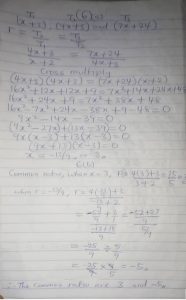 T₁ T₂ (6)(a) T₃
(x+2), (4x+3) and (7x+24)
r = T₂/T₁ = T₃/T₂
4x+3 / x+2 = 7x+24 / 4x+3
Cross multiply
(4x+3)(4x+3) = (7x+24)(x+2)
16x²+12x+12x+9 = 7x²+14x+24x+48
16x²+24x+9 = 7x²+38x+48
16x²-7x²+24x-38x+9-48 = 0
9x²-14x-39=0
(9x²-27x)+(13x-39)=0
9x(x-3)+13(x-3)=0
(9x+13)(x-3)=0
x = -13/9, 3
6(b)
Common ratio, when x = 3, 4(3)+3 / 3+2 = 15/5 = 3
when x = -13/9, r =
= -25/9 ÷ 5/9
= -25/9 × 9/5 = -5
∴ The common ratio are 3 and -5